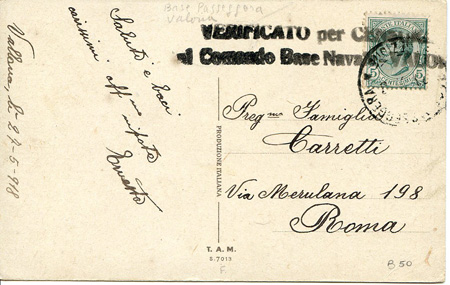 Base Passeggera
Valona
VERIFICATO per
al Comando Base Nava
POSTE ITALIANE
5 5
Vallona, li 27-5-918
Saluti e baci
carissimi aff.mo nipote
Ernesto
Preg.ma Famiglia
Carretti
Via Merulana 198
Roma
PRODUZIONE ITALIANA
T. A. M.
S. 7013
F
B 50